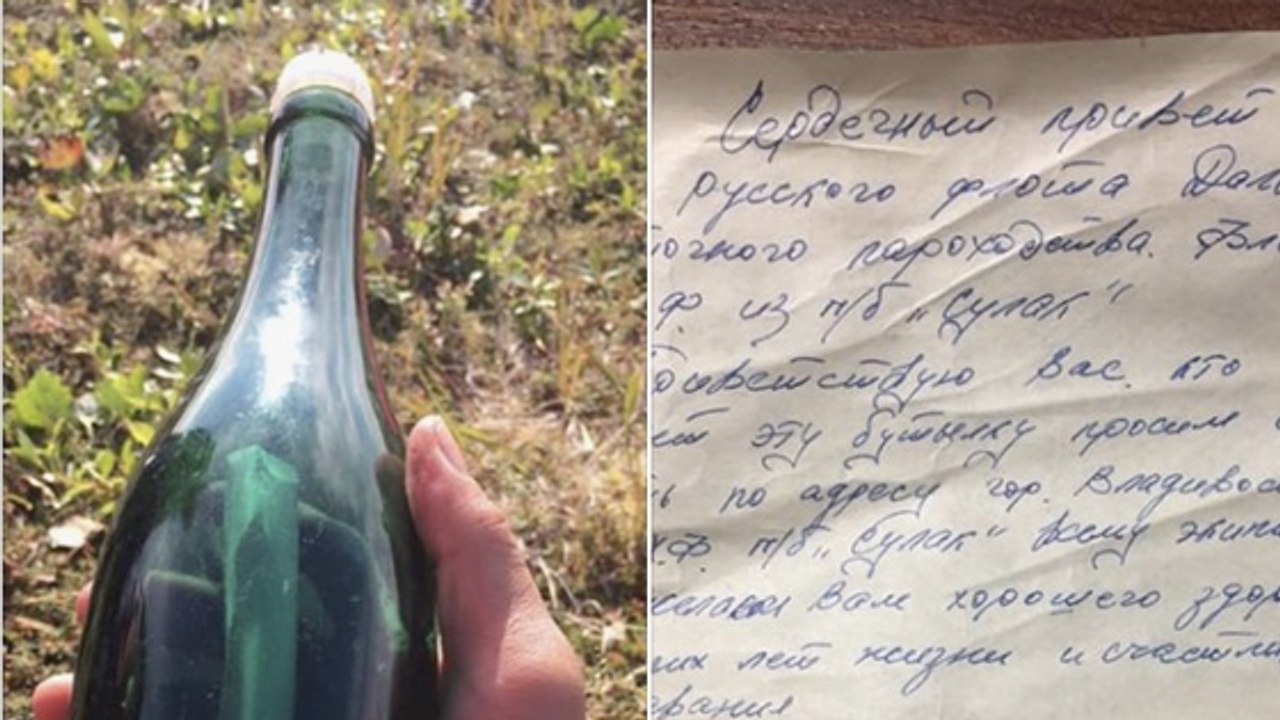 Сердечный привет
русского флота Дал
очного пароходства. Вл
Ф. из п/б „Сулак"
ветствую Вас, кто
ет эту бутылку просим
ь по адресу гор. Владивос
Ф. п/б „Сулак" всему экип
желаем Вам хорошего здор
их лет жизни и счастли
вания